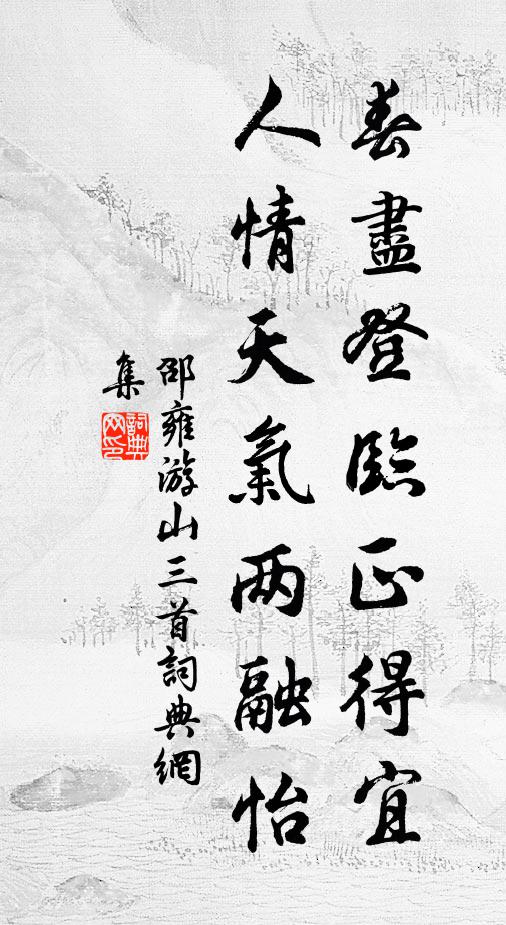 春盡登臨正得宜
人情天氣兩融怡
邵雍游山三首詞典網
集
詞典
网印